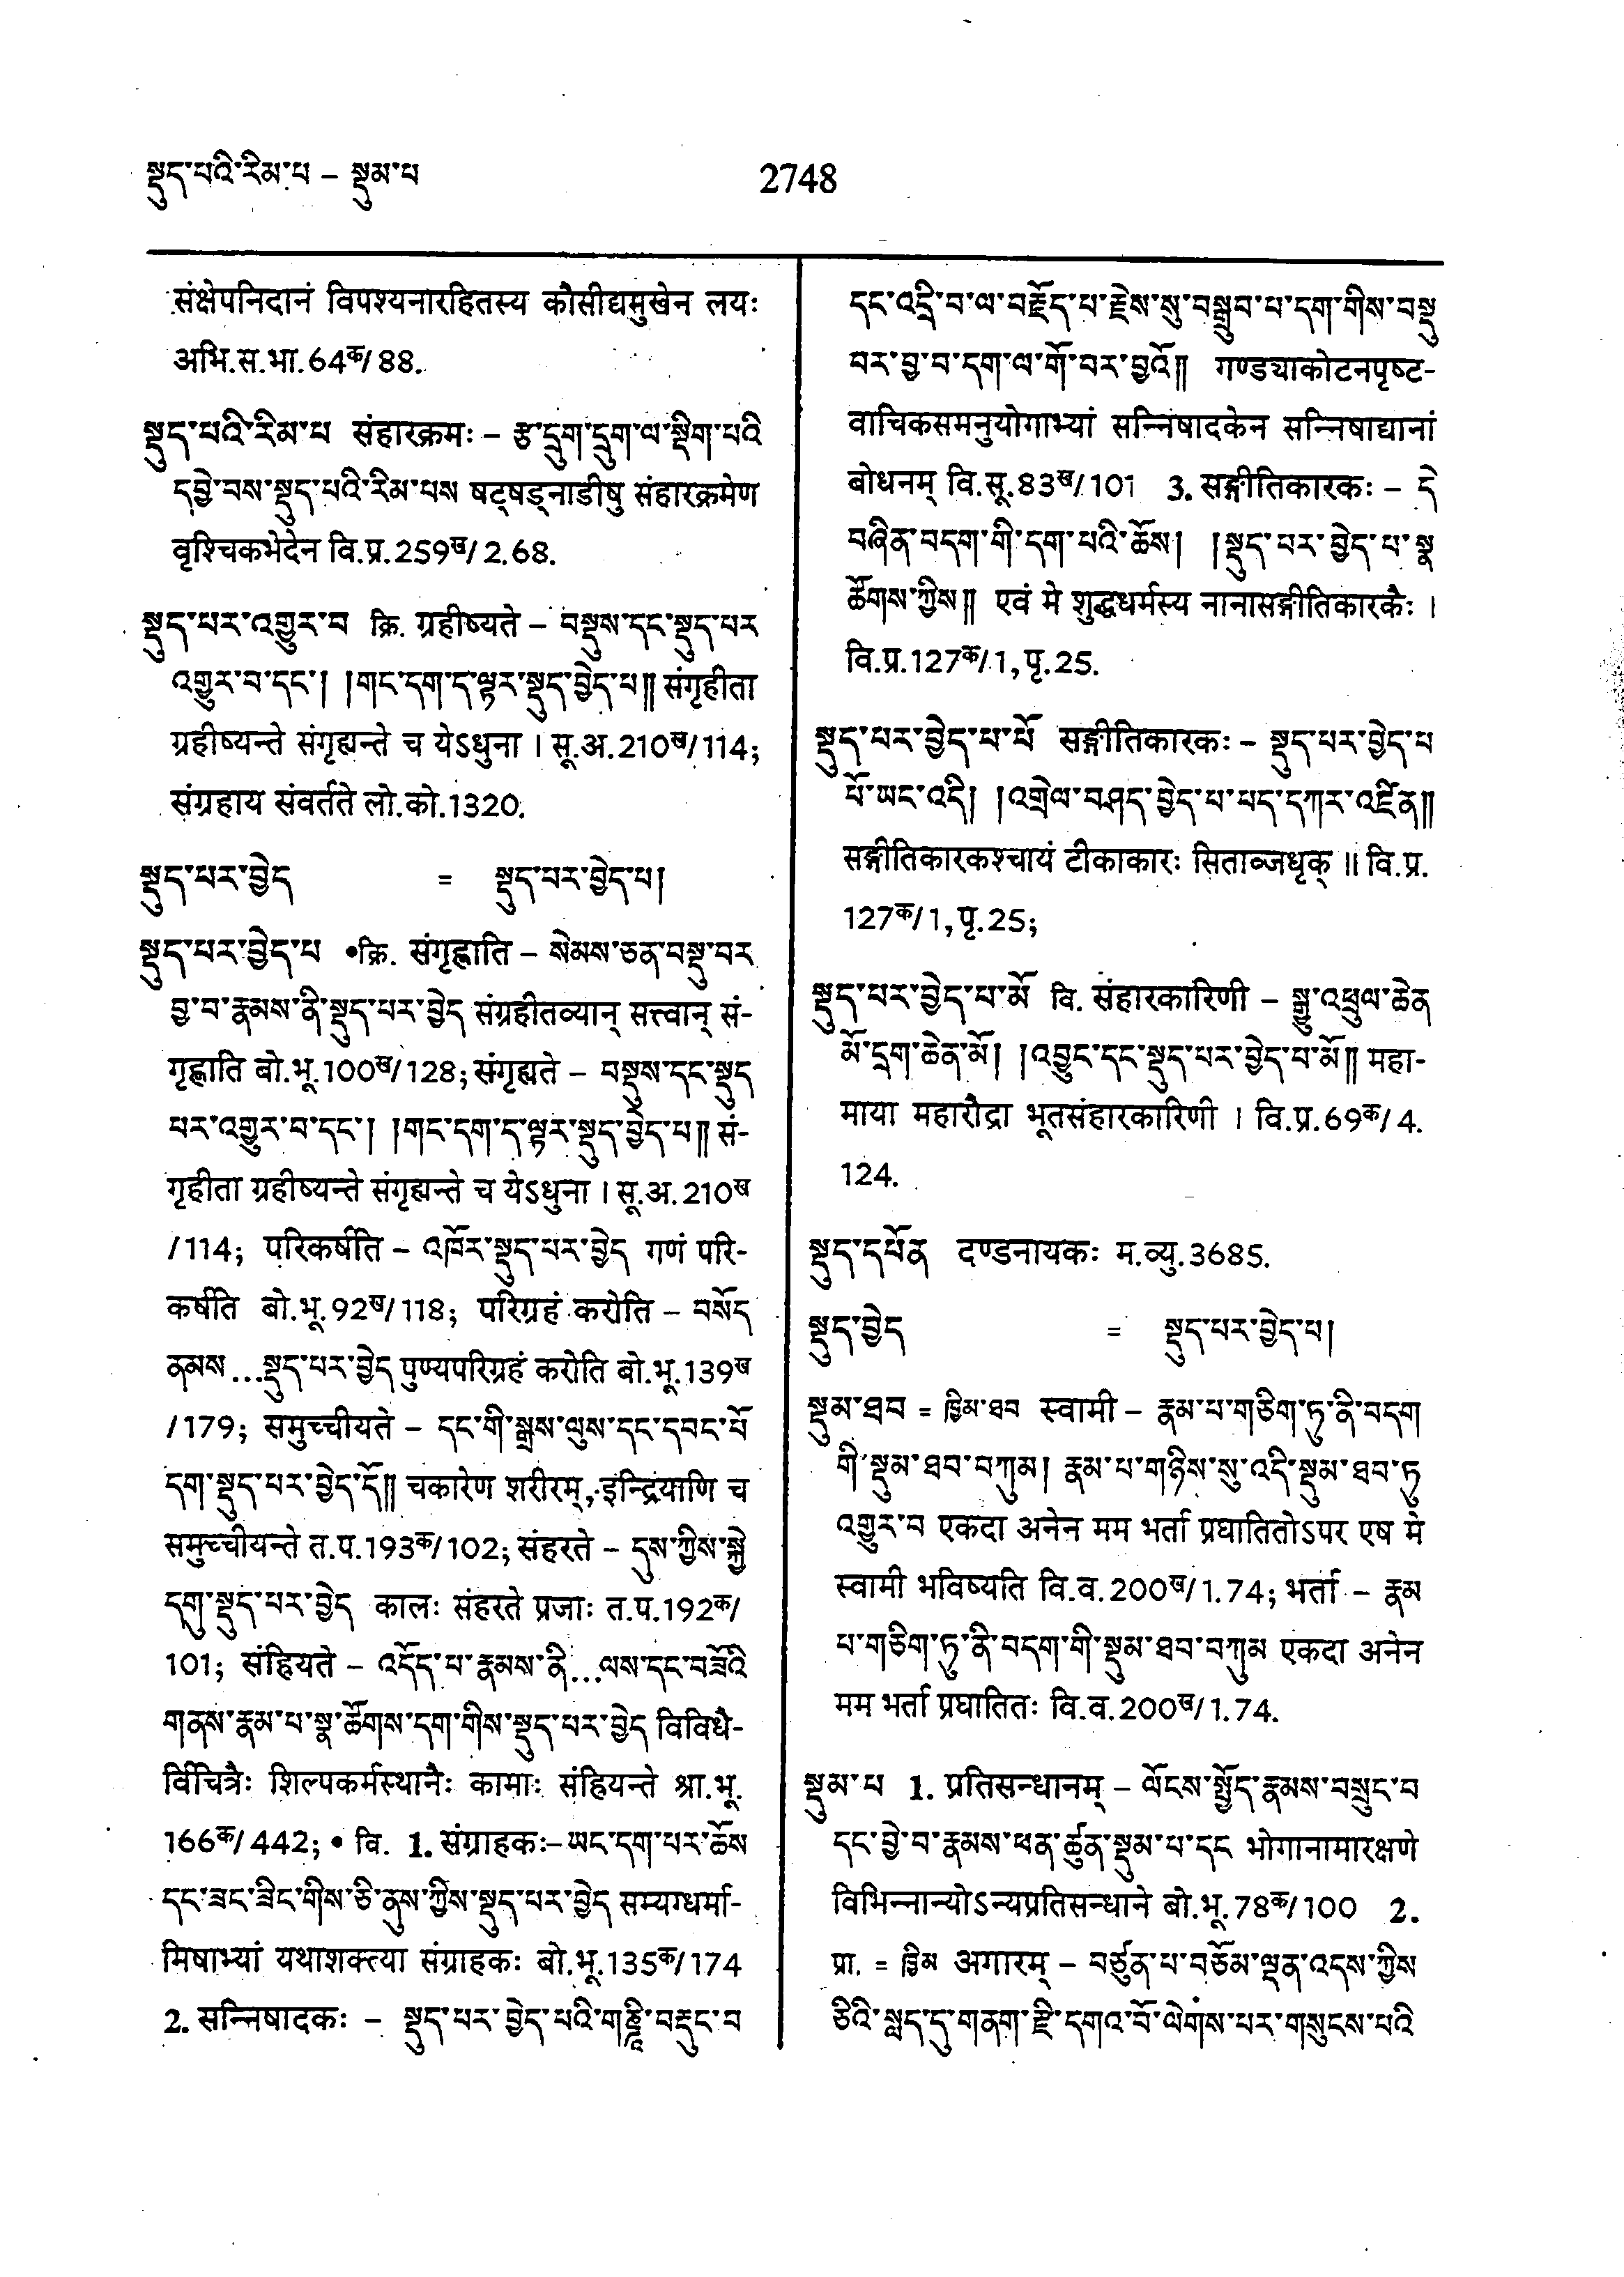 སྡུད་པའི་རིམ་པ – སྡུམ་པ
2748
संक्षेपनिदानं विपश्यनारहितस्य कौसीद्यमुखेन लयः
अभि.स.भा.64क/88.
སྡུད་པའི་རིམ་པ संहारक्रमः – རྩ་དྲུག་དྲུག་ལ་སྡིག་པའི
དབྱེ་བས་སྡུད་པའི་རིམ་པས षट्षड्नाडीषु संहारक्रमेण
वृश्चिकभेदेन वि.प्र.259ख/2.68.
སྡུད་པར་འགྱུར་བ क्रि. ग्रहीष्यते – བསྡུས་དང་སྡུད་པར
འགྱུར་བ་དང་། །གང་དག་ད་ལྟར་སྡུད་བྱེད་པ༎ संगृहीता
ग्रहीष्यन्ते संगृह्यन्ते च येऽधुना । सू.अ.210ख/114;
संग्रहाय संवर्तते लो.को.1320.
སྡུད་པར་བྱེད = སྡུད་པར་བྱེད་པ།
སྡུད་པར་བྱེད་པ •क्रि. संगृह्णाति – སེམས་ཅན་བསྡུ་བར
བྱ་བ་རྣམས་ནི་སྡུད་པར་བྱེད संग्रहीतव्यान् सत्त्वान् सं-
गृह्णाति बो.भू.100ख/128; संगृह्यते – བསྡུས་དང་སྡུད
པར་འགྱུར་བ་དང་། །གང་དག་ད་ལྟར་སྡུད་བྱེད་པ༎ सं-
गृहीता ग्रहीष्यन्ते संगृह्यन्ते च येऽधुना । सू.अ.210ख
/114; परिकर्षति – འཁོར་སྡུད་པར་བྱེད गणं परि-
कर्षति बो.भू.92ख/118; परिग्रहं करोति – བསོད
ནམས...སྡུད་པར་བྱེད पुण्यपरिग्रहं करोति बो.भू.139ख
/179; समुच्चीयते – དང་གི་སྒྲས་ལུས་དང་དབང་པོ
དག་སྡུད་པར་བྱེད་དོ༎ चकारेण शरीरम्, इन्द्रियाणि च
समुच्चीयन्ते त.प.193क/102; संहरते – དུས་ཀྱིས་སྐྱེ
དགུ་སྡུད་པར་བྱེད कालः संहरते प्रजाः त.प.192क/
101; संहियते – འདོད་པ་རྣམས་ནི...ལས་དང་བཟོའི
གནས་རྣམ་པ་སྣ་ཚོགས་དག་གིས་སྡུད་པར་བྱེད विविधै-
र्विचित्रैः शिल्पकर्मस्थानैः कामाः संहियन्ते श्रा.भू.
166क/442; • वि. 1. संग्राहकः– ཡང་དག་པར་ཆོས
དང་ཟང་ཟིང་གིས་ཅི་ནུས་ཀྱིས་སྡུད་པར་བྱེད सम्यग्धर्मा-
मिषाभ्यां यथाशक्त्या संग्राहकः बो.भू.135क/174
2. सन्निषादकः – སྡུད་པར་བྱེད་པའི་གཎྜཱི་བརྡུང་བ
དང་འདྲི་བ་ལ་བརྗོད་པ་རྗེས་སུ་བསྒྲུབ་པ་དག་གིས་བསྡུ
བར་བྱ་བ་དག་ལ་གོ་བར་བྱའོ༎ गण्ड्याकोटनपृष्ट-
वाचिकसमनुयोगाभ्यां सन्निषादकेन सन्निषाद्यानां
बोधनम् वि.सू.83ख/101 3. सङ्गीतिकारकः – དེ
བཞིན་བདག་གི་དག་པའི་ཆོས། །སྡུད་པར་བྱེད་པ་སྣ
ཚོགས་ཀྱིས༎ एवं मे शुद्धधर्मस्य नानासङ्गीतिकारकैः ।
वि.प्र.127क/1, पृ.25.
སྡུད་པར་བྱེད་པ་པོ सङ्गीतिकारकः – སྡུད་པར་བྱེད་པ
པོ་ཡང་འདི། །འགྲེལ་བཤད་བྱེད་པ་པད་དཀར་འཛིན༎
सङ्गीतिकारकश्चायं टीकाकारः सिताब्जधृक् ॥ वि.प्र.
127क/1, पृ.25;
སྡུད་པར་བྱེད་པ་མོ वि. संहारकारिणी – སྒྱུ་འཕྲུལ་ཆེན
མོ་དྲག་ཆེན་མོ། །འབྱུང་དང་སྡུད་པར་བྱེད་པ་མོ༎ महा-
माया महारौद्रा भूतसंहारकारिणी । वि.प्र.69क/4.
124.
སྡུད་དཔོན दण्डनायकः म.व्यु.3685.
སྡུད་བྱེད = སྡུད་པར་བྱེད་པ།
སྡུམ་ཐབ = ཁྱིམ་ཐབ स्वामी – རྣམ་པ་གཅིག་ཏུ་ནི་བདག
གི་སྡུམ་ཐབ་བཀུམ། རྣམ་པ་གཉིས་སུ་འདི་སྡུམ་ཐབ་ཏུ
འགྱུར་བ एकदा अनेन मम भर्ता प्रघातितोऽपर एष मे
स्वामी भविष्यति वि.व.200ख/1.74; भर्ता – རྣམ
པ་གཅིག་ཏུ་ནི་བདག་གི་སྡུམ་ཐབ་བཀུམ एकदा अनेन
मम भर्ता प्रघातितः वि.व.200ख/1.74.
སྡུམ་པ 1. प्रतिसन्धानम् – ལོངས་སྤྱོད་རྣམས་བསྲུང་བ
དང་བྱེ་བ་རྣམས་ཕན་ཚུན་སྡུམ་པ་དང भोगानामारक्षणे
विभिन्नान्योऽन्यप्रतिसन्धाने बो.भू.78क/100 2.
प्रा. = ཁྱིམ अगारम् – བཙུན་པ་བཅོམ་ལྡན་འདས་ཀྱིས
ཅིའི་སླད་དུ་གནག་རྫི་དགའ་བོ་ལེགས་པར་གསུངས་པའི